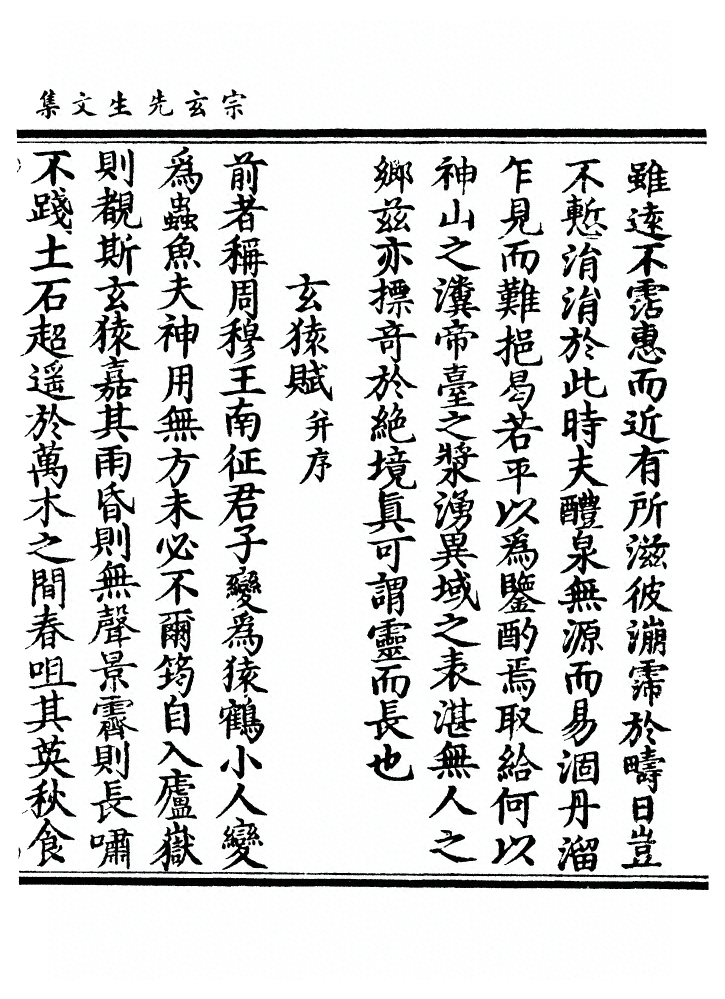 宗玄先生文集
雖遠不霑惠而近有所滋彼漰霈於疇日豈
不慙涓涓於此時夫醴泉無源而易涸丹溜
乍見而難挹曷若平以爲鑒酌焉取給何以
神山之瀵帝臺之漿湧異域之表湛無人之
鄉茲亦摽奇於絕境眞可謂靈而長也
玄猿賦并序
前者稱周穆王南征君子變爲猿鶴小人變
爲蟲魚夫神用無方未必不爾筠自入廬嶽
則覩斯玄猿嘉其雨昏則無聲景霽則長嘯
不踐土石超遥於萬木之間春咀其英秋食